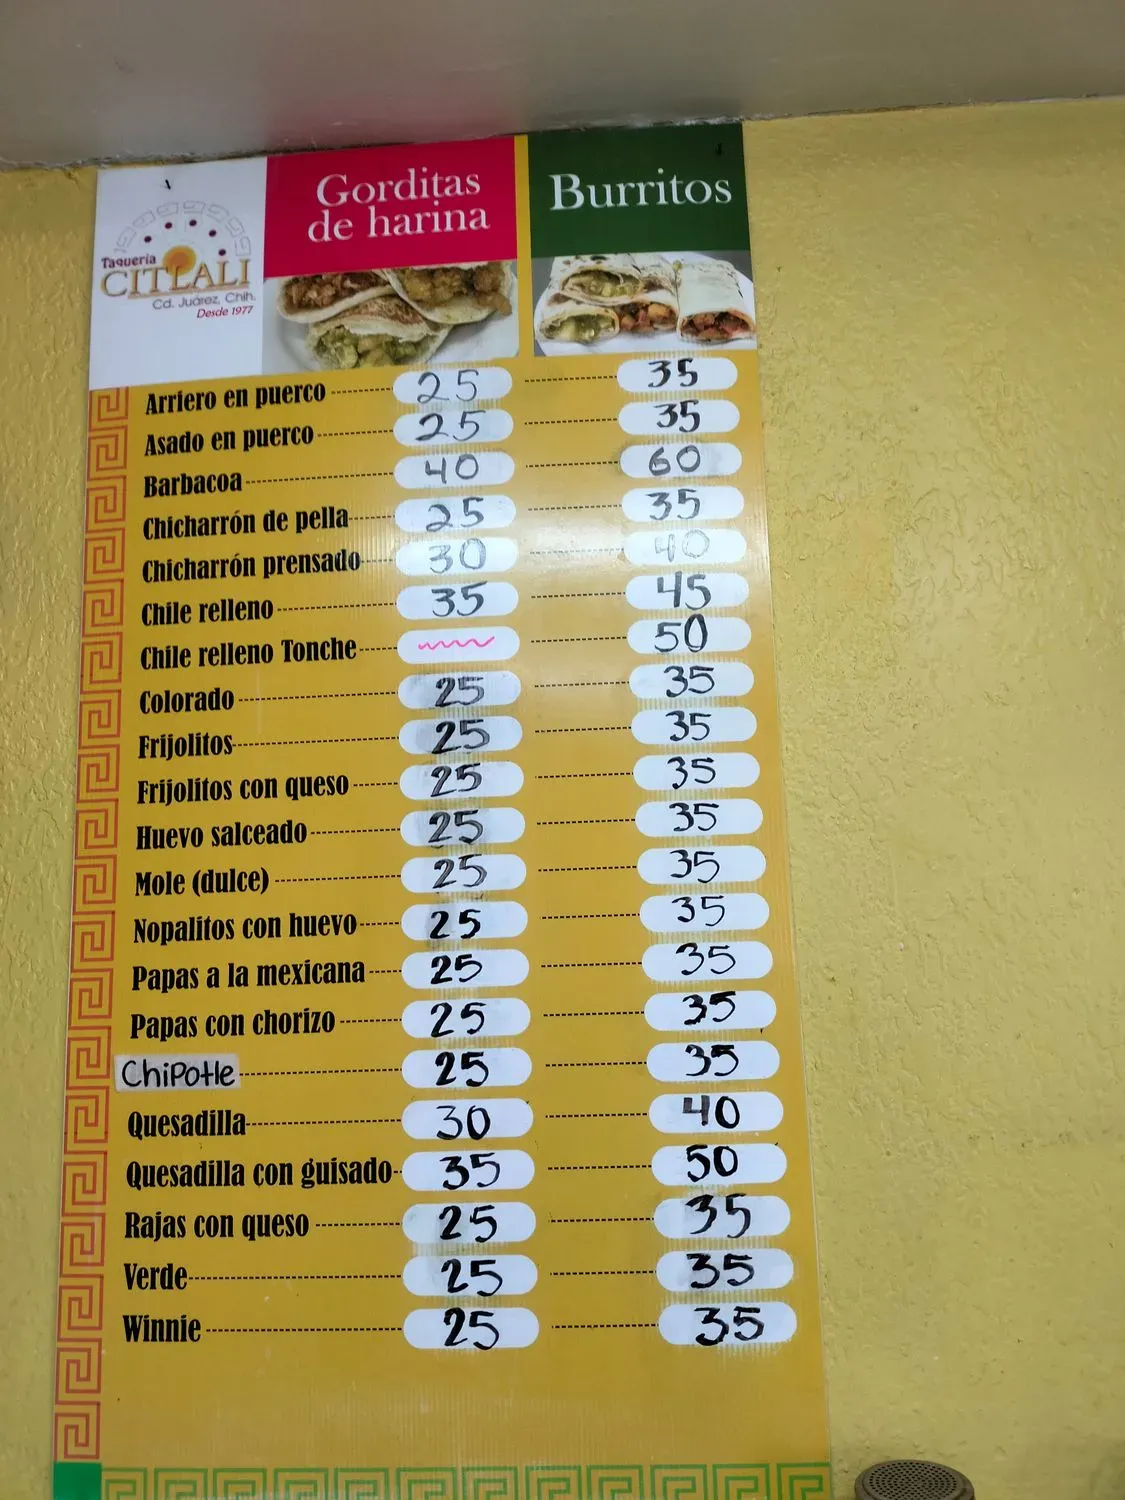 Taquería
CITLALI
Cd. Juárez, Chih.
Desde 1977
Gorditas
de harina
Burritos
Arriero en puerco 25 35
Asado en puerco 25 35
Barbacoa 40 60
Chicharrón de pella 25 35
Chicharrón prensado 30 40
Chile relleno 35 45
Chile relleno Tonche 50
Colorado 25 35
Frijolitos 25 35
Frijolitos con queso 25 35
Huevo salceado 25 35
Mole (dulce) 25 35
Nopalitos con huevo 25 35
Papas a la mexicana 25 35
Papas con chorizo 25 35
ChiPotle 25 35
Quesadilla 30 40
Quesadilla con guisado 35 50
Rajas con queso 25 35
Verde 25 35
Winnie 25 35